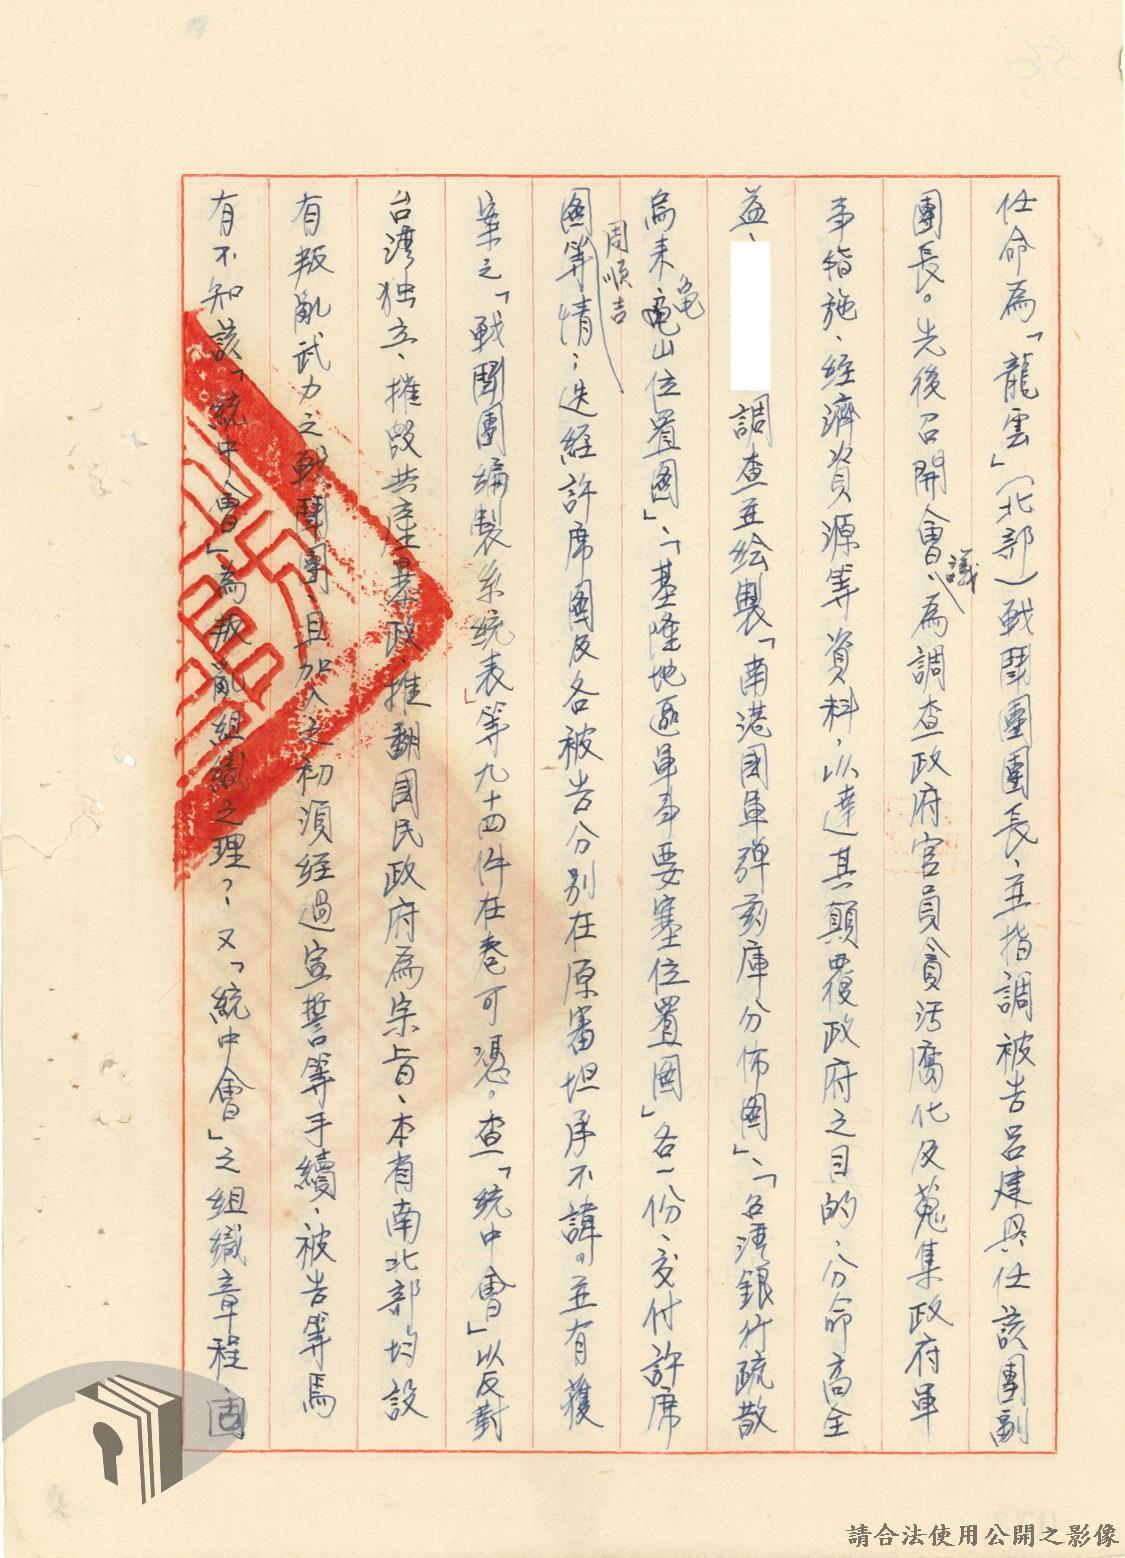 任命為「龍雲」(北部)戰鬥團團長、並指調被告呂建興任該團副
團長。先後召開會議、為調查政府官員貪污腐化及蒐集政府軍
事措施、經濟資源等資料、以達其顛覆政府之目的、分命高全
益、 調查並绘製「南港國軍彈药庫分佈圖」、「台湾銀行疏散
烏来龜山位置图」、「基隆地區軍事要塞位置图」各一份、交付許席
图周順吉等情;迭經許席圖及各被告分别在原審坦承不諱。並有獲
案之「戰鬪團編製系統表」等九十四件在卷可憑。查「統中會」以反對
台湾独立、摧毀共產暴政、推翻國民政府為宗旨、本有南北部均設
有叛亂武力之戰鬪團、且加入之初須經過宣誓等手續、被告等焉
有不知該「統中會」為叛亂組織之理?、又「統中會」之組織章程、固
請合法使用公開之影像